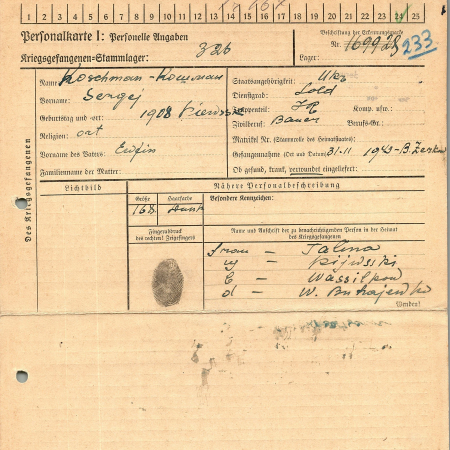 1 2 3 4 5 6 7 8 9 10 11 12 13 14 15 16 17 18 19 20 21 22 23 24 25
Personalkarte I: Personelle Angaben
Beschriftung der Erkennungsmarke
Nr. 16992 233
Kriegsgefangenen-Stammlager: 326
Lager:
Des Kriegsgefangenen
Name: Koschman
Staatsangehörigkeit: Ukr
Vorname: Sergej
Dienstgrad: Sold
Truppenteil: Komp. usw.:
Geburtstag und -ort: 1908
Zivilberuf: Bauer Berufs-Gr.:
Religion: ort
Matrikel Nr. (Stammrolle des Heimatstaates):
Vorname des Vaters: Eufim
Gefangennahme (Ort und Datum): 31.11 1943
Familienname der Mutter:
Ob gesund, krank, verwundet eingeliefert:
Lichtbild
Nähere Personalbeschreibung
Größe Haarfarbe Besondere Kennzeichen:
168
Fingerabdruck
des rechten! Zeigefingers
Name und Anschrift der zu benachrichtigenden Person in der Heimat
des Kriegsgefangenen
Frau — Talina
uj — Kijewski
b — Wassilkow
d — W.
Wenden!